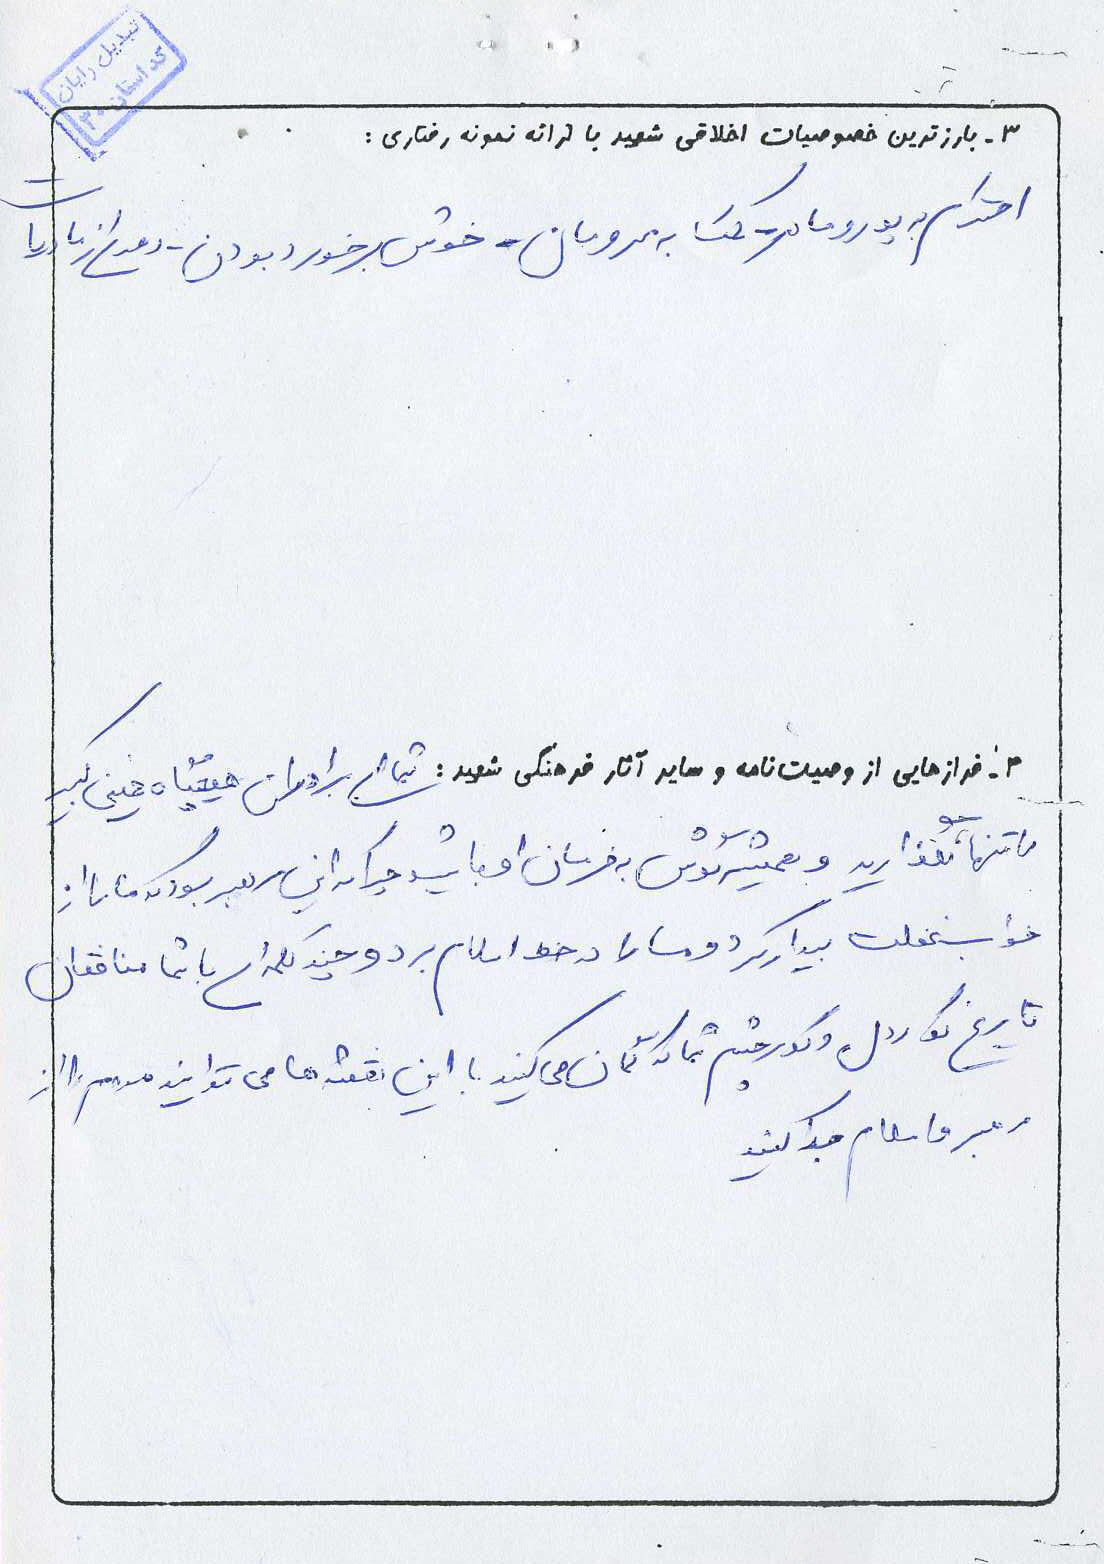 تبدیل رایان
کد استان ۳۰
۳- بارزترین خصوصیات اخلاقی شهید با ارائه نمونه رفتاری :
احترام به پدر و مادر - کمک به مردمان - خوش برخورد بودن - دفاع از
۴- فرازهایی از وصیت‌نامه و سایر آثار فرهنگی شهید : شما ای برادران هیچگاه خمینی کبیر
را تنها نگذارید و همیشه گوش به فرمان او باشید چرا که این رهبر بود که ما را از
خواب غفلت بیدار کرد و ما را در خط اسلام برد و چند کلمه ای با شما منافقان
تاریخ کور دل و کور چشم شما که گمان می کنید با این نقشه ها می توانید مردم را از
رهبر و اسلام جدا کنید